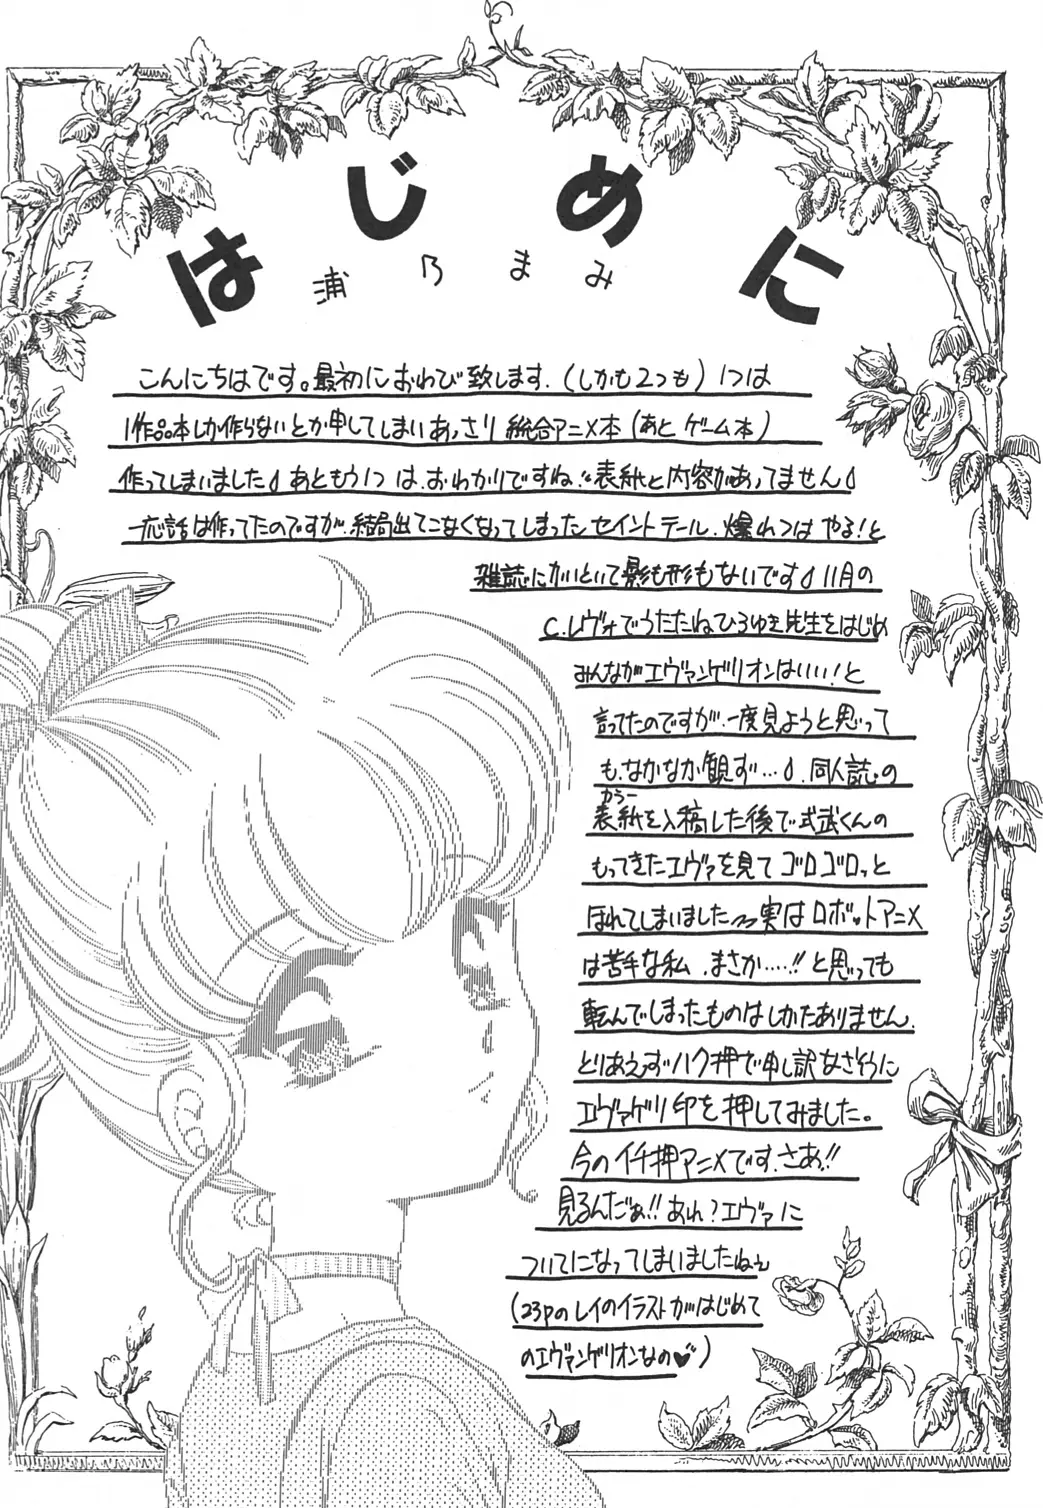 はじめに
浦乃まみ
こんにちはです。最初におわび致します.(しかも2つも)1つは
1作品本しか作らないとか申してしまいあっさり総合アニメ本(あとゲーム本)
作ってしまいました あともう1つは.おわかりですね."表紙と内容があってません
一応話は作ってたのですが.結局出てこなくなってしまったセイントテール.爆れつはやる!と
雑誌にかいといて影も形もないです 11月の
C.レヴォでうたたねひろゆき先生をはじめ
みんながエヴァンゲリオンはいい!と
言ってたのですが.一度見ようと思って
も.なかなか観ず… .同人誌の
カラー
表紙を入稿した後で式武くんの
もってきたエヴァを見てゴロゴロッと
ほれてしまいました〜実はロボットアニメ
は苦手な私.まさか….!!と思っても
転んでしまったものはしかたありません.
とりあえずハク押で申し訳なさそうに
エヴァゲリ印を押してみました。
今のイチ押アニメです.さあ!!
見るんだぁ!!あれ?エヴァに
ついてになってしまいましたねぇ
(23Pのレイのイラストがはじめて
のエヴァンゲリオンなの♥)